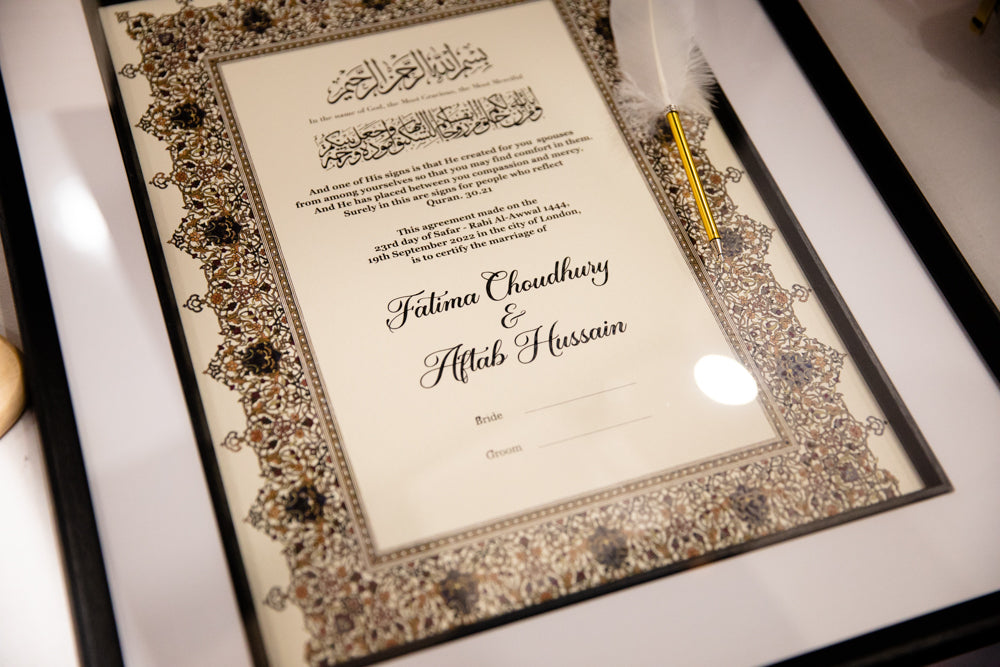 بسم الله الرحمن الرحيم
In the name of God, the Most Gracious, the Most Merciful
And one of His signs is that He created for you spouses
from among yourselves so that you may find comfort in them.
And He has placed between you compassion and mercy.
Surely in this are signs for people who reflect
Quran. 30.21
This agreement made on the
23rd day of Safar - Rabi Al-Awwal 1444,
19th September 2022 in the city of London,
is to certify the marriage of
Fatima Choudhury
&
Aftab Hussain
Bride
Groom